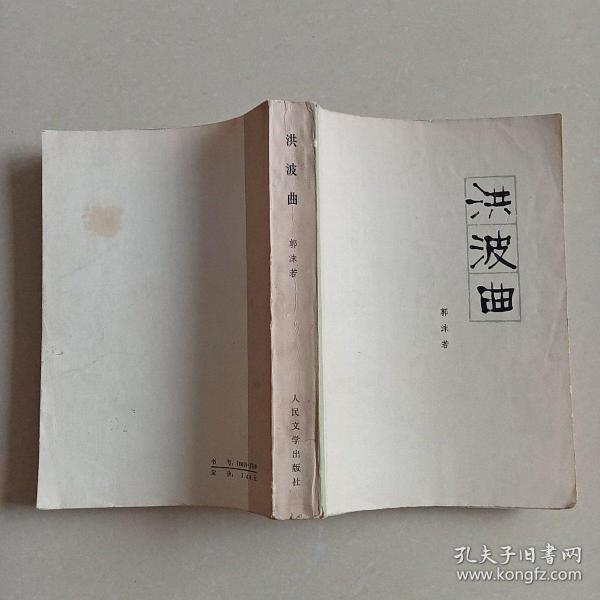 洪波曲
郭沫若
人民文学出版社
洪
波
曲
郭沫若
书号:
定价:
孔夫子旧书网
www.kongfz.com